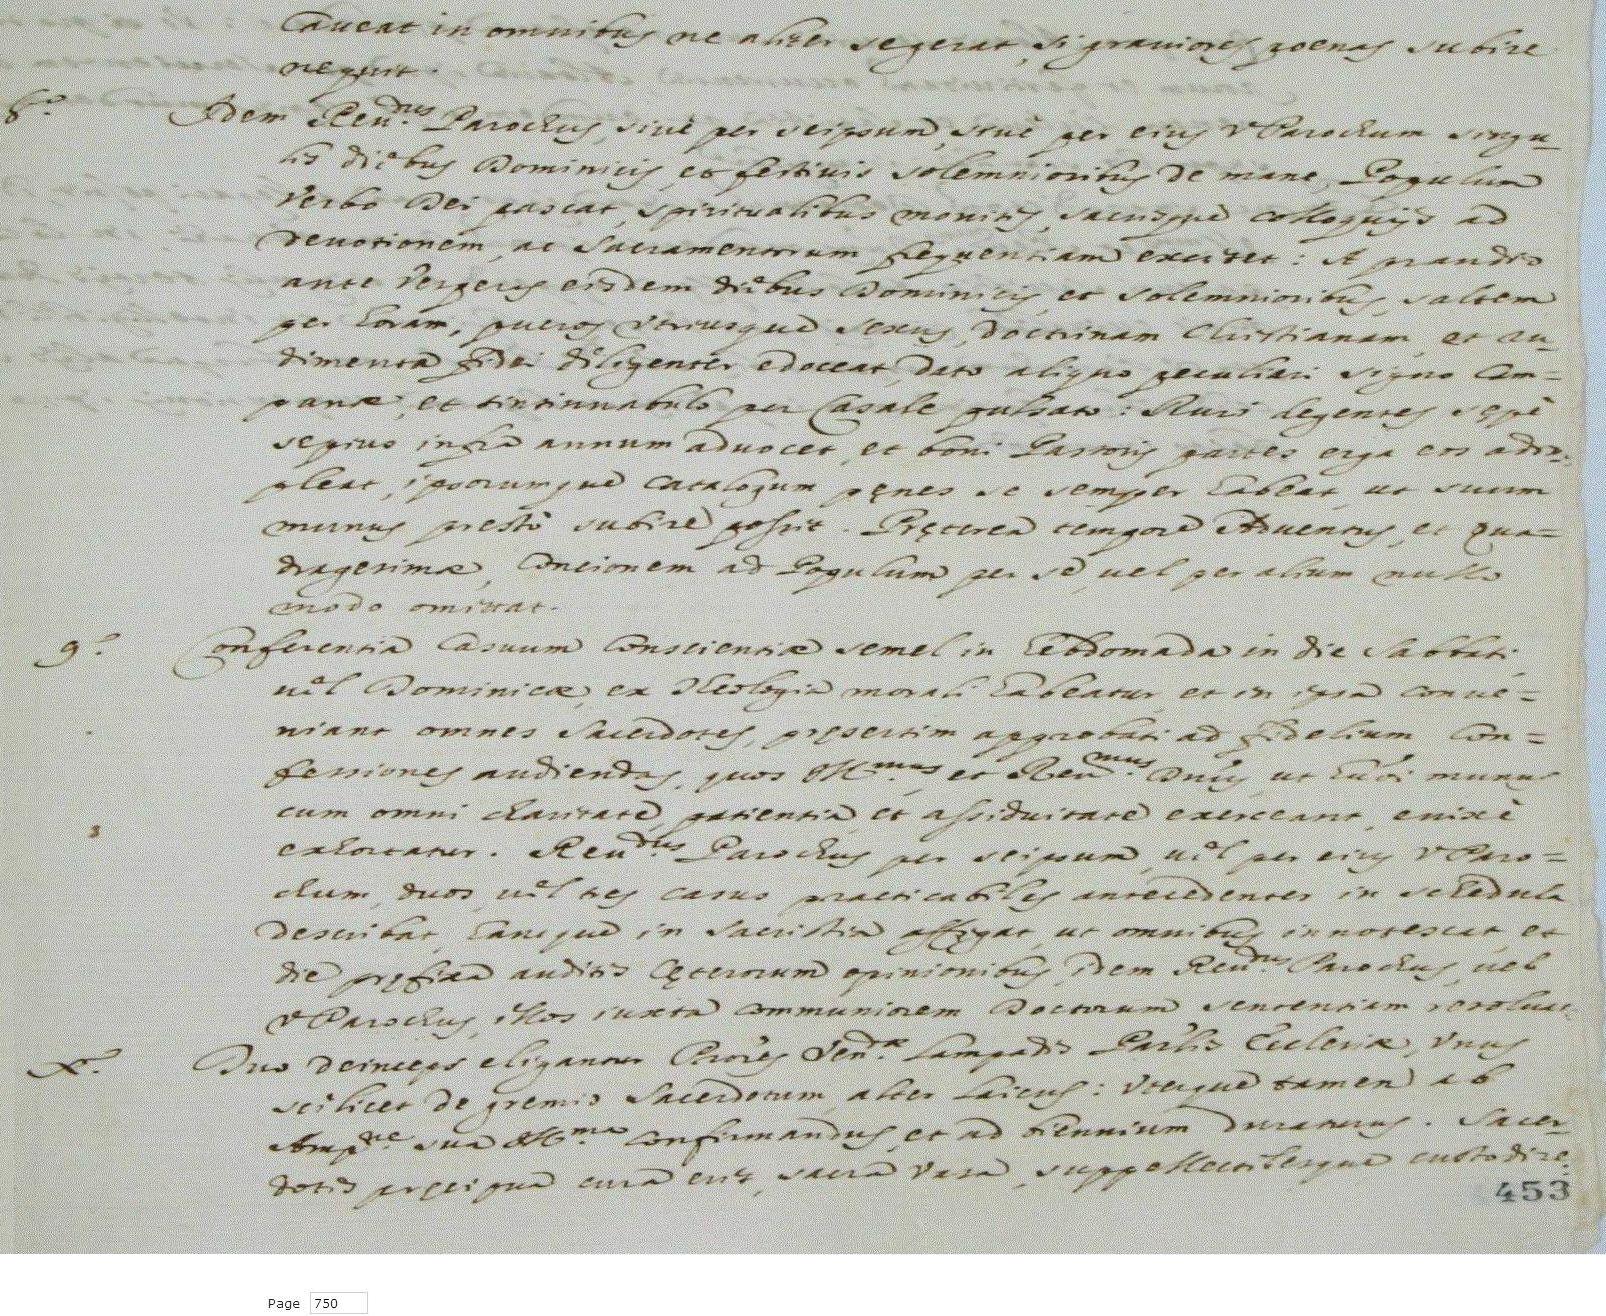 Caueat in omnibus ne aliter se gerat, si grauiores poenas subire
nequit.
8.o Idem Reu.dus Parochus, siuè per seipsum, siuè per eius VParochum singu-
lis diebus Dominicis, et festiuis solemnioribus de mane, Populum
Verbo Dei pascat, spiritualibus monitis, sacrisque colloquijs ad
deuotionem, ac Sacramentorum frequentiam excitet: A prandio
ante Vesperas eisdem diebus Dominicis, et solemnioribus, saltem
per horam, pueros Vtriusque sexus, Doctrinam Christianam, et ru-
dimenta Fidei diligenter edoceat, dato aliquo peculiari signo Cam=
panæ, et tintinnabulo per Casale pulsato: Ruri degentes sępè
sepius infra annum aduocet, et boni Pastoris partes erga eos adim-
pleat, ipsorumque Catalogum pęnes se semper habeat, ut suum
munus prestò subire possit. Pręterea tempore Aduentus, et Qua=
dragesimæ, Concionem ad Populum per se, uel per alium nullo
modo omittat.
9.o Conferentia Casuum Conscientiæ semel in hebdomada in die Sabbati,
uel Dominicæ, ex Theologia morali habeatur, et in ipsa conue=
niant omnes Sacerdotes, pręsertim approbati ad Fidelium Con=
fessiones audiendas, quos Ill.mus et Reu.mus Dnus, ut huic muneri
cum omni charitate, patientia, et assiduitate exerceant, enixè
exhortatur. Reu.dus Parochus per seipsum, uel per eius VParo=
chum, duos, uel tres casus practicabiles antecedenter in schedula
describat, eamque in Sacristia affigat, ut omnibus innotescat, et
die pręfixa auditis cęterorum opinionibus, idem Reu.dus Parochus, uel
VParochus, illos iuxta communiorem Doctorum sententiam resoluat.
X.o Duo deinceps eligantur Procres Ven.æ Lampadis Parlis Ecclesiæ, Vnus
scilicet de gremio Sacerdotum, alter Laicus: Vterque tamen ab
Amp.ne sua Ill.ma confirmandus, et ad biennium duraturus. Sacer-
dotis pręcipua cura erit, sacra Vasa, suppellectilesque custodire.
453
Page 750